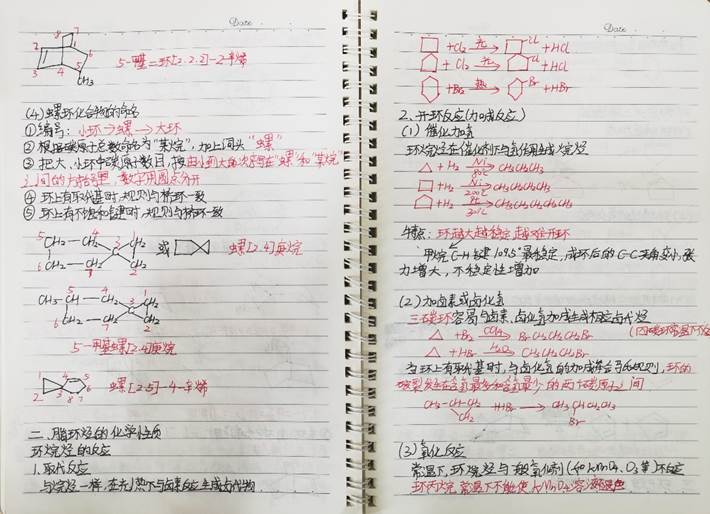 Date
5-甲基二环[2.2.2]-2-辛烯
CH3
(4)螺环化合物的命名
①编号:小环→螺→大环
②根据碳原子总数命名为"某烷",加上词头"螺"
③把大、小环中碳原子数目,按由小到大的次序写在"螺"和"某烷"
之间的方括号里,数字用圆点分开
④环上有取代基时,规则与桥环一致
⑤环上有不饱和键时,规则与桥环一致
或 螺[2.4]庚烷
5-甲基螺[2.4]庚烷
螺[2.5]-4-辛烯
二、脂环烃的化学性质
环烷烃的反应
1.取代反应
与烷烃一样,在光/热下与卤素反应生成卤代物
Date
+Cl2 光→ Cl +HCl
+Cl2 光→ Cl +HCl
+Br2 热→ Br +HBr
2.开环反应(加成反应)
(1)催化加氢
环烷烃在催化剂下与氢作用生成烷烃
△ +H2 Ni 80℃→ CH3CH2CH3
□ +H2 Ni 200℃→ CH3CH2CH2CH3
+H2 300℃→ CH3CH2CH2CH2CH3
特点:环越大越稳定,越难开环
甲烷C-H键109.5°最稳定,成环后的C-C夹角变小,张
力增大,不稳定性增加
(2)加卤素或卤化氢
三碳环容易与卤素、卤化氢加成生成相应卤代烃
△ +Br2 CCl4→ BrCH2CH2CH2Br
△ +HBr H2O→ CH3CH2CH2Br
当环上有取代基时,与卤化氢的加成符合马氏规则,环的
破裂发生在含氢最多和含氢最少的两个碳原子之间
CH3-CH-CH2 CH2 +HBr → CH3CHCH2CH3 Br
(3)氧化反应
常温下,环烷烃与一般氧化剂(如KMnO4、O3等)不反应
环丙烷常温下不能使KMnO4溶液褪色